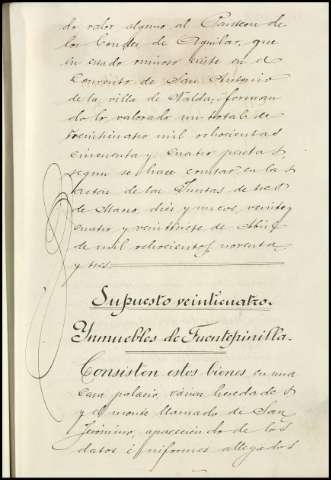 do valor alguno al Panteon de
los Condes de Aguilar, que
en estado ruinoso existe en el
Convento de San Antonio
de la villa de Nalda; forman
do lo valorado un total de
treinticuatro mil ochocientas
cincuenta y cuatro pesetas,
segun se hace constar en las
actas de las Juntas de tres
de Mayo, diez y nueve, veinti
cuatro y veintisiete de Abril
de mil ochocientos noventa
y tres.
Supuesto veinticuatro.
Inmuebles de Fuentepinilla.
Consisten estos bienes en una
casa palacio, varias heredades
y el monte llamado de San
Jerónimo, apareciendo de los
datos é informes allegados